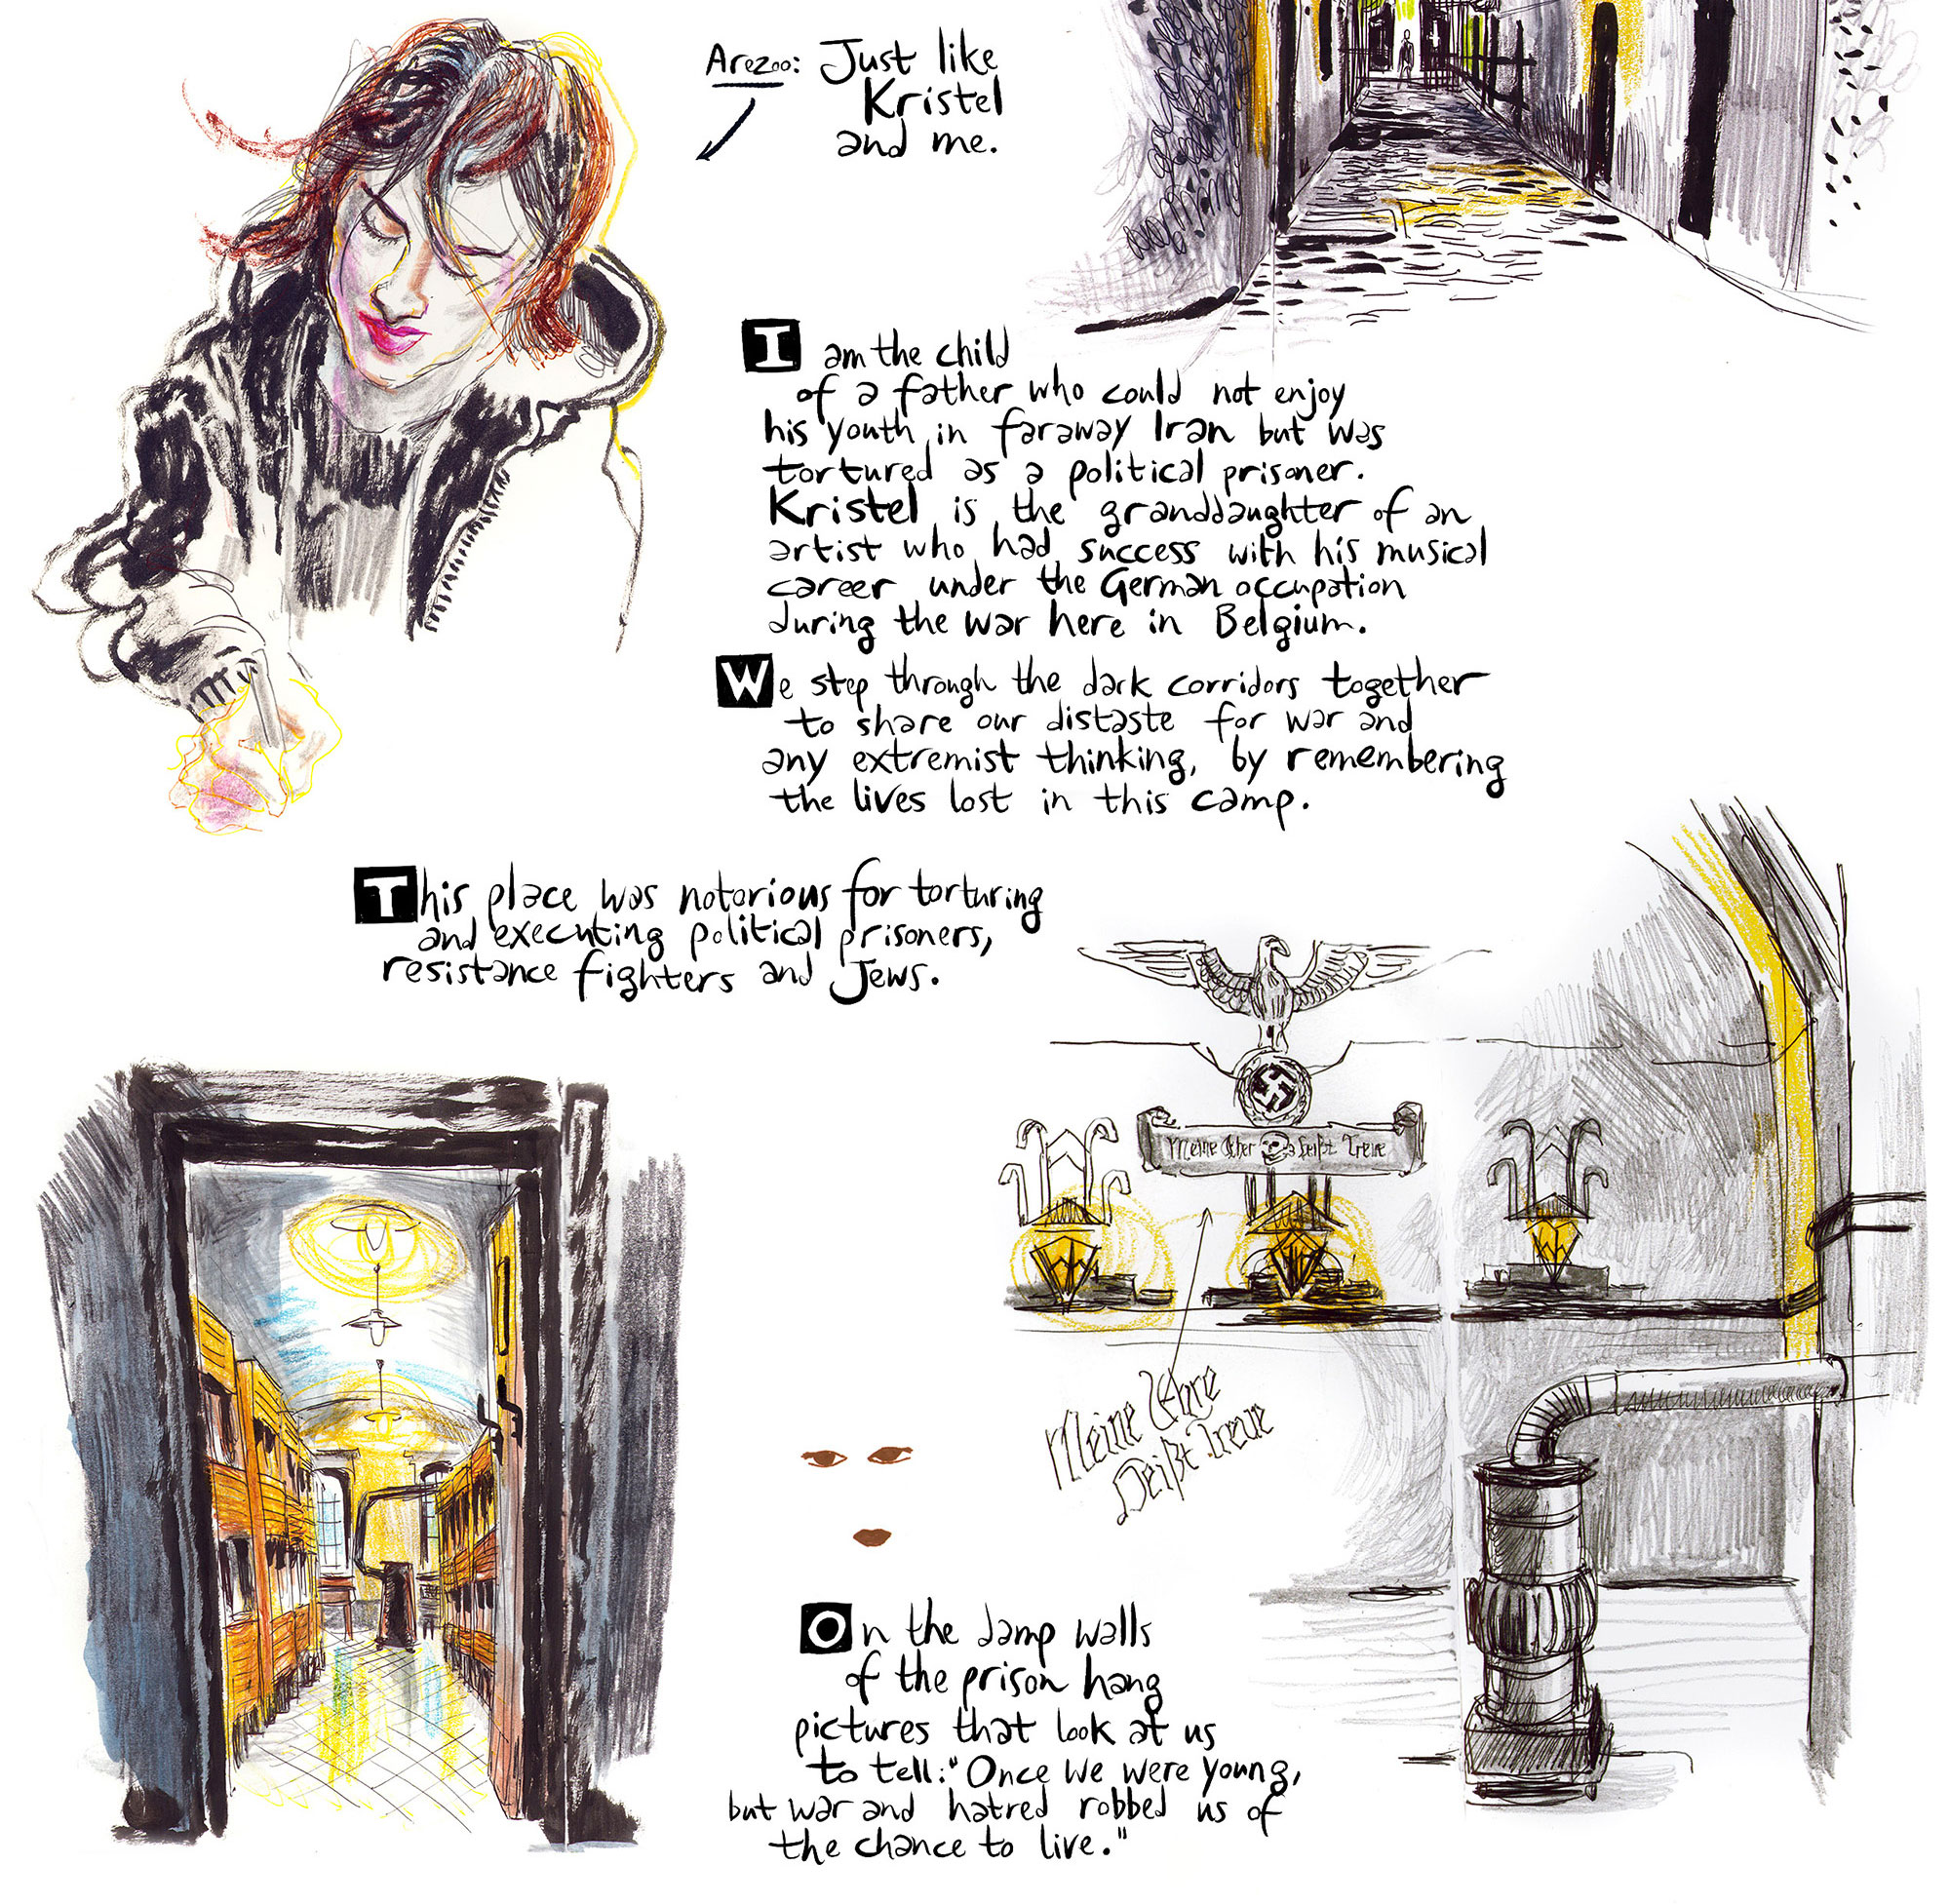 Arezoo: Just like
Kristel
and me.
I am the child
of a father who could not enjoy
his youth in faraway Iran but was
tortured as a political prisoner.
Kristel is the granddaughter of an
artist who had success with his musical
career under the German occupation
during the war here in Belgium.
We step through the dark corridors together
to share our distaste for war and
any extremist thinking, by remembering
the lives lost in this camp.
This place was notorious for torturing
and executing political prisoners,
resistance fighters and Jews.
Meine Ehre Heißt Treue
Meine Ehre
Heißt Treue
On the damp walls
of the prison hang
pictures that look at us
to tell: "Once we were young,
but war and hatred robbed us of
the chance to live."